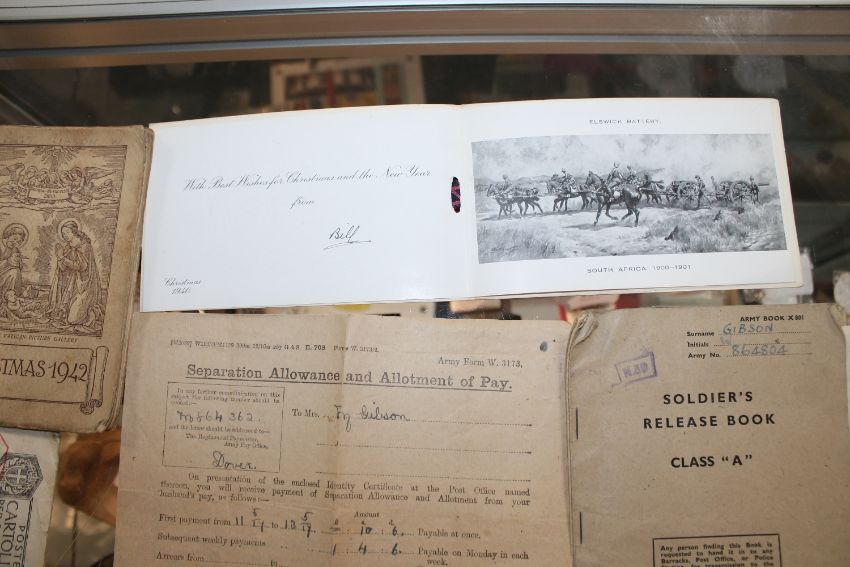 With Best Wishes for Christmas and the New Year
from
Bill
Christmas
1940
ELSWICK BATTERY.
SOUTH AFRICA 1900-1901
VATICAN PICTURE GALLERY
STMAS 1942
POSTE
CARTOLI
Army Form W. 3173.
Separation Allowance and Allotment of Pay.
In any further communication on this
subject the following number should be
quoted:—
864362.
and the letter should be addressed to—
The Regimental Paymaster,
Army Pay Office,
Dover
To Mrs. Gibson
On presentation of the enclosed Identity Certificate at the Post Office named
thereon, you will receive payment of Separation Allowance and Allotment from your
husband's pay, as follows:—
Amount
First payment from 11 5/17 to 13 5/17 10 : 6 Payable at once.
Subsequent weekly payments 1 : 4 : 6 Payable on Monday in each
week.
Arrears from to
ARMY BOOK X 801
Surname GIBSON
Initials W
Army No. 864804
SOLDIER'S
RELEASE BOOK
CLASS "A"
Any person finding this Book is
requested to hand it in to any
Barracks, Post Office, or Police